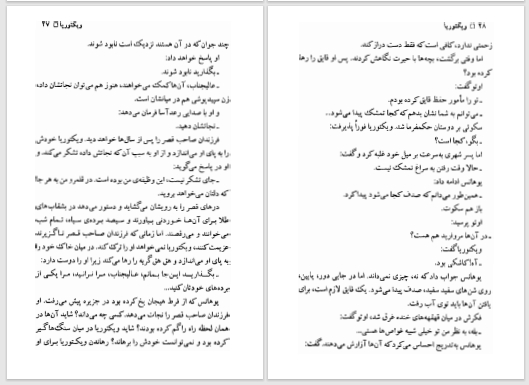 ویکتوریا □ ۴۷
چند جوان که در آن هستند نزدیک است نابود شوند.
او پاسخ خواهد داد:
ـ بگذارید نابود شوند.
ـ عالیجناب، آن‌ها کمک می‌خواهند، هنوز هم می‌توان نجاتشان داد،
زن سپیدپوشی هم در میانشان است.
و او با صدایی رعدآسا فرمان می‌دهد:
ـ نجاتشان دهید.
فرزندان صاحب قصر را پس از سال‌ها خواهد دید. ویکتوریا خودش
را به پای او می‌اندازد و از او به سبب آن‌که نجاتش داده تشکر می‌کند. و
او در پاسخ می‌گوید:
ـ جای تشکر نیست، این وظیفه‌ی من بوده است. در قلمرو من به هر جا
که دلتان می‌خواهد بروید.
درهای قصر را به رویشان می‌گشاید و دستور می‌دهد در بشقاب‌های
طلا برای آن‌ها خوردنی بیاورند و سیصد برده‌ی سیاه، تمام شب
می‌خوانند و می‌رقصند. اما زمانی که فرزندان صاحب قصر ناگزیرند
عزیمت کنند، ویکتوریا نمی‌خواهد او را ترک کند. در میان خاک خود را
به پای او می‌اندازد و هق هق گریه را رها می‌کند زیرا او را دوست دارد:
ـ بگذارید این‌جا بمانم، عالیجناب، مرا نرانید، مرا یکی از
برده‌های خودتان کنید...
یوهانس که از فرط هیجان یخ کرده بود در جزیره پیش می‌رفت. او
فرزندان صاحب قصر را نجات می‌دهد. کسی چه می‌داند؟ شاید آن‌ها در
همان لحظه راه را گم کرده بودند؟ شاید ویکتوریا در میان سنگ‌ها گیر
کرده بود و نمی‌توانست خودش را برهاند؟ رهاندن ویکتوریا برای او
۴۸ □ ویکتوریا
زحمتی ندارد، کافی است که فقط دست دراز کند.
اما وقتی برگشت، بچه‌ها با حیرت نگاهش کردند. پس او قایق را رها
کرده بود؟
اوتو گفت:
ـ تو را مأمور حفظ قایق کرده بودم.
ـ می‌توانم به شما نشان بدهم که کجا تمشک پیدا می‌شود...
سکوتی بر دوستان حکمفرما شد. ویکتوریا فوراً پذیرفت:
ـ بگو، کجا است؟
اما پسر شهری به‌سرعت بر میل خود غلبه کرد و گفت:
ـ حالا وقت رفتن به سراغ تمشک نیست.
یوهانس ادامه داد:
ـ همین‌طور می‌دانم که صدف کجا می‌شود پیدا کرد.
باز هم سکوت.
اوتو پرسید:
ـ در آن‌ها مروارید هم هست؟
ویکتوریا گفت:
ـ آه! کاشکی بود.
یوهانس جواب داد که نه، چیزی نمی‌داند. اما در جایی دور، پایین،
روی شن‌های سفید سفید، صدف پیدا می‌شود. یک قایق لازم است، برای
یافتن آن‌ها باید توی آب رفت.
فکرش در میان قهقهه‌های خنده غرق شد، اوتو گفت:
ـ بله، به نظر من تو خیلی شبیه غواص‌ها هستی...
یوهانس به‌تدریج احساس می‌کرد که آن‌ها آزارش می‌دهند. گفت: